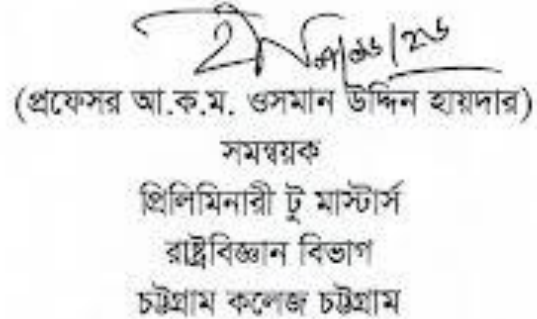 (প্রফেসর আ.ক.ম. ওসমান উদ্দিন হায়দার)
সমন্বয়ক
প্রিলিমিনারী টু মাস্টার্স
রাষ্ট্রবিজ্ঞান বিভাগ
চট্টগ্রাম কলেজ চট্টগ্রাম